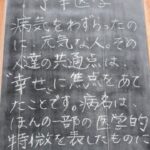 幸医学
病気をわずらったの
に、元気な人。その
人達の共通点は、
"幸せ"に焦点をあて
たことです。病名は、
ほんの一部の医学的
特徴を表したものに